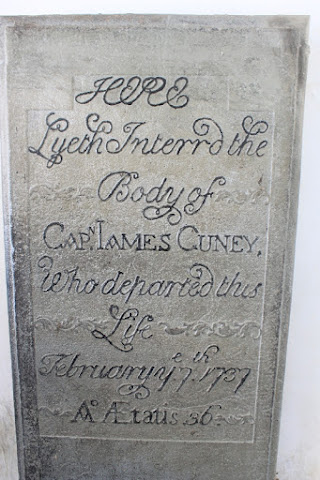 HERE
Lyeth Interrd the
Body of
CAPN. IAMES CUNEY,
Who departed this
Life
February ye 7th. 1737
Ao Ætatis 36.